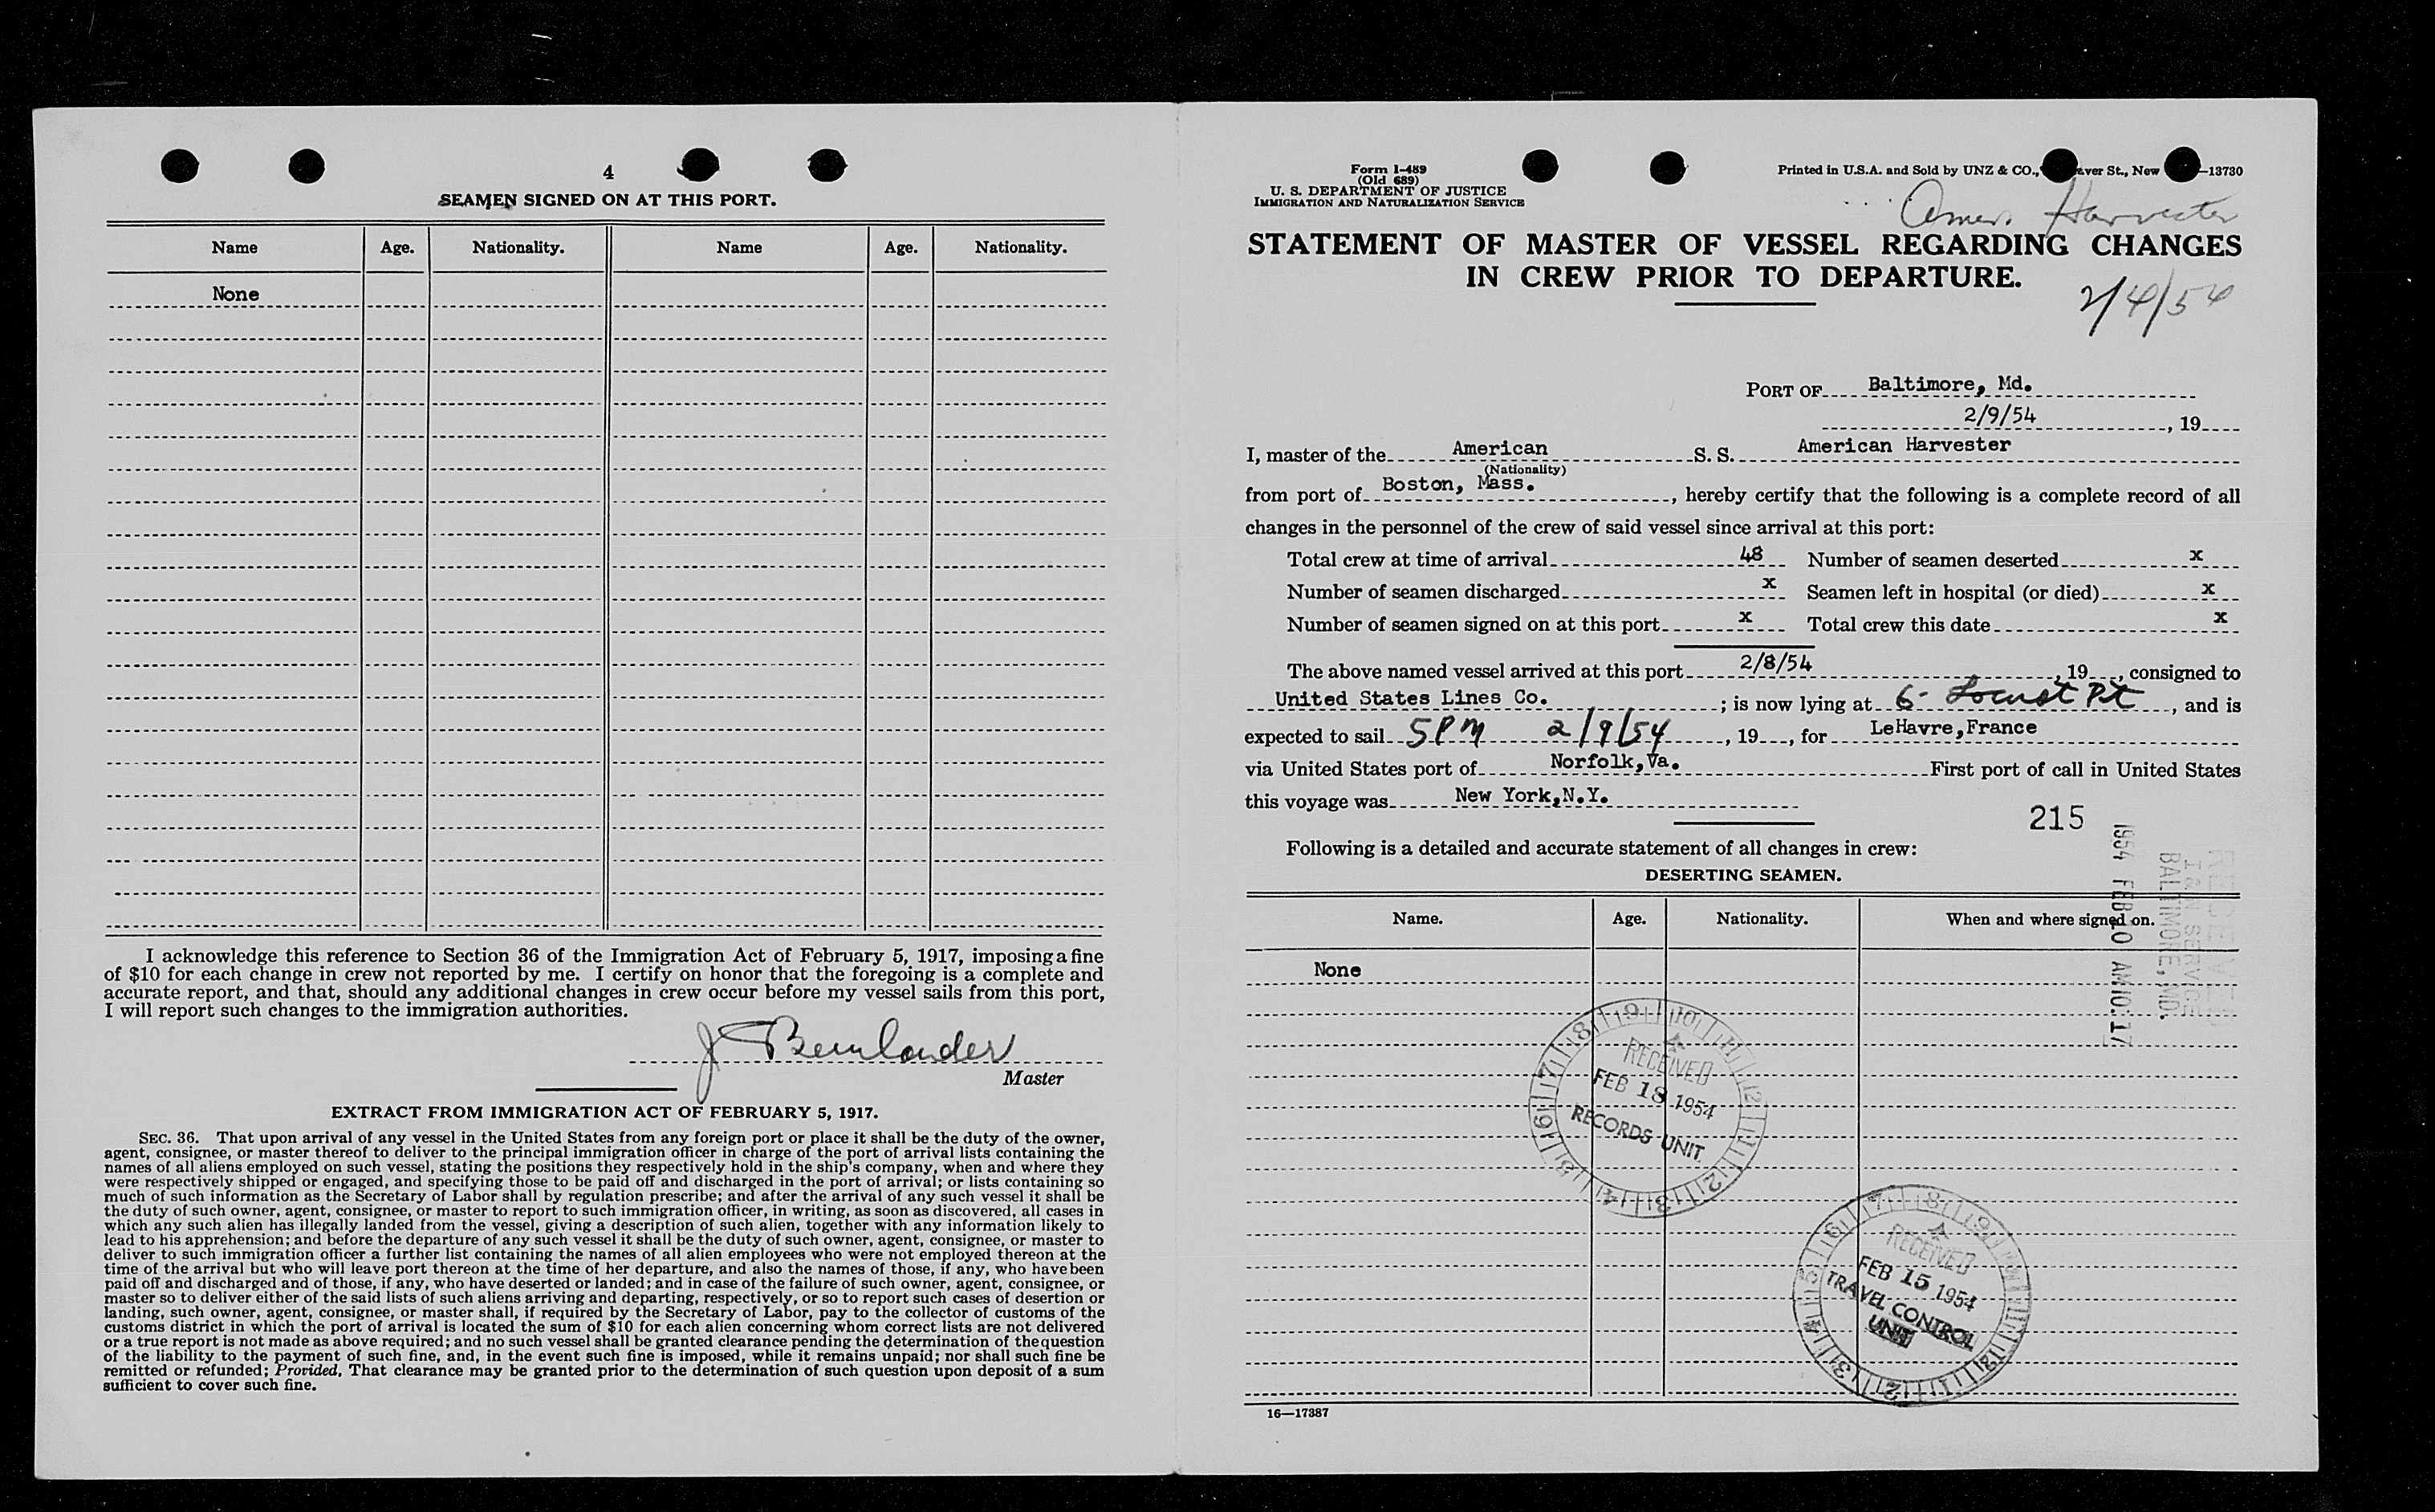 4
SEAMEN SIGNED ON AT THIS PORT.
Name Age. Nationality. Name Age. Nationality.
None
I acknowledge this reference to Section 36 of the Immigration Act of February 5, 1917, imposing a fine
of $10 for each change in crew not reported by me. I certify on honor that the foregoing is a complete and
accurate report, and that, should any additional changes in crew occur before my vessel sails from this port,
I will report such changes to the immigration authorities.
Master
EXTRACT FROM IMMIGRATION ACT OF FEBRUARY 5, 1917.
SEC. 36. That upon arrival of any vessel in the United States from any foreign port or place it shall be the duty of the owner,
agent, consignee, or master thereof to deliver to the principal immigration officer in charge of the port of arrival lists containing the
names of all aliens employed on such vessel, stating the positions they respectively hold in the ship's company, when and where they
were respectively shipped or engaged, and specifying those to be paid off and discharged in the port of arrival; or lists containing so
much of such information as the Secretary of Labor shall by regulation prescribe; and after the arrival of any such vessel it shall be
the duty of such owner, agent, consignee, or master to report to such immigration officer, in writing, as soon as discovered, all cases in
which any such alien has illegally landed from the vessel, giving a description of such alien, together with any information likely to
lead to his apprehension; and before the departure of any such vessel it shall be the duty of such owner, agent, consignee, or master to
deliver to such immigration officer a further list containing the names of all alien employees who were not employed thereon at the
time of the arrival but who will leave port thereon at the time of her departure, and also the names of those, if any, who have been
paid off and discharged and of those, if any, who have deserted or landed; and in case of the failure of such owner, agent, consignee, or
master so to deliver either of the said lists of such aliens arriving and departing, respectively, or so to report such cases of desertion or
landing, such owner, agent, consignee, or master shall, if required by the Secretary of Labor, pay to the collector of customs of the
customs district in which the port of arrival is located the sum of $10 for each alien concerning whom correct lists are not delivered
or a true report is not made as above required; and no such vessel shall be granted clearance pending the determination of the question
of the liability to the payment of such fine, and, in the event such fine is imposed, while it remains unpaid; nor shall such fine be
remitted or refunded; Provided, That clearance may be granted prior to the determination of such question upon deposit of a sum
sufficient to cover such fine.
Form I-489
(Old 689)
U. S. DEPARTMENT OF JUSTICE
IMMIGRATION AND NATURALIZATION SERVICE
Printed in U.S.A. and Sold by UNZ & CO., ver St., New -13730
Amer. Harvester
STATEMENT OF MASTER OF VESSEL REGARDING CHANGES
IN CREW PRIOR TO DEPARTURE.
2/4/54
PORT OF Baltimore, Md.
2/9/54, 19
I, master of the American S. S. American Harvester
(Nationality)
from port of Boston, Mass., hereby certify that the following is a complete record of all
changes in the personnel of the crew of said vessel since arrival at this port:
Total crew at time of arrival 48 Number of seamen deserted x
Number of seamen discharged x Seamen left in hospital (or died) x
Number of seamen signed on at this port x Total crew this date x
The above named vessel arrived at this port 2/8/54, 19, consigned to
United States Lines Co.; is now lying at 6- Locust Pt, and is
expected to sail 5PM 2/9/54, 19, for LeHavre,France
via United States port of Norfolk,Va. First port of call in United States
this voyage was New York,N.Y.
215
Following is a detailed and accurate statement of all changes in crew:
DESERTING SEAMEN.
Name. Age. Nationality. When and where signed on.
None
RECEIVED
I & N SERVICE
BALTIMORE, MD.
1954 FEB 10 AM 10:17
RECEIVED
FEB 18 1954
RECORDS UNIT
RECEIVED
FEB 15 1954
TRAVEL CONTROL
UNIT
16—17387